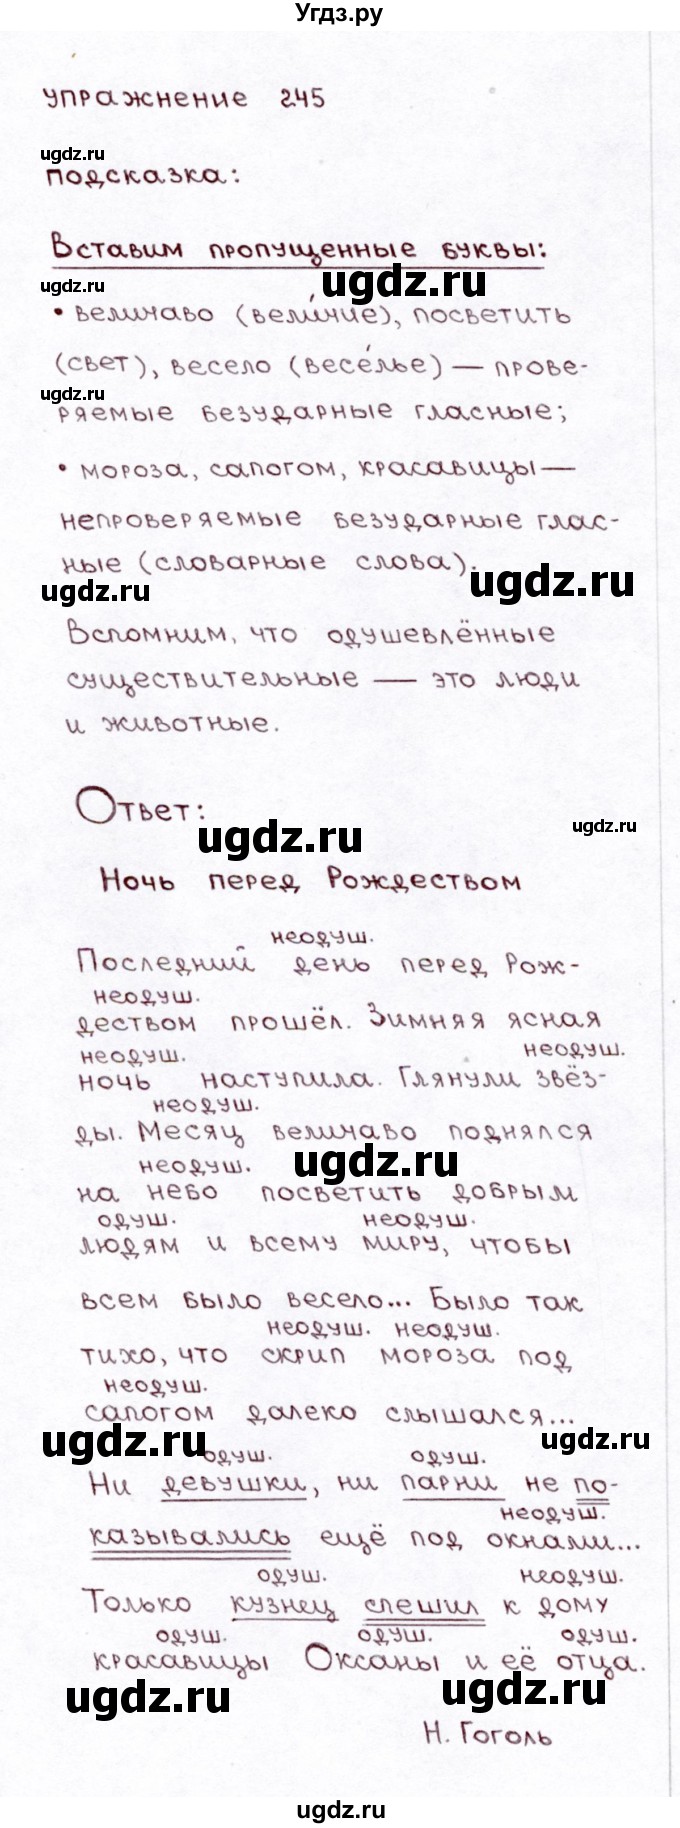 Угдз.ру
упражнение 245
ugdz.ru
подсказка:
Вставим пропущенные буквы:
ugdz.ru ugdz.ru
• величаво (вели́чие), посветить
(свет), весело (весе́лье) — прове-
ugdz.ru
ряемые безударные гласные;
• мороза, сапогом, красавицы —
непроверяемые безударные глас-
ные (словарные слова).
ugdz.ru ugdz.ru
Вспомним, что одушевлённые
существительные — это люди
и животные.
Ответ:
ugdz.ru ugdz.ru
Ночь перед Рождеством
неодуш.
Последний день перед Рож-
неодуш.
деством прошёл. Зимняя ясная
неодуш. неодуш.
ночь наступила. Глянули звёз-
неодуш.
ды. Месяц величаво поднялся
неодуш. ugdz.ru
на небо посветить добрым
одуш. неодуш.
людям и всему миру, чтобы
всем было весело... Было так
неодуш. неодуш.
тихо, что скрип мороза под
неодуш.
сапогом далеко слышался...
ugdz.ru ugdz.ru
одуш. одуш.
Ни девушки, ни парни не по-
неодуш.
казывались ещё под окнами...
одуш. неодуш.
Только кузнец спешил к дому
одуш. одуш. одуш.
красавицы Оксаны и её отца.
ugdz.ru ugdz.ru
Н. Гоголь
ugdz.ru